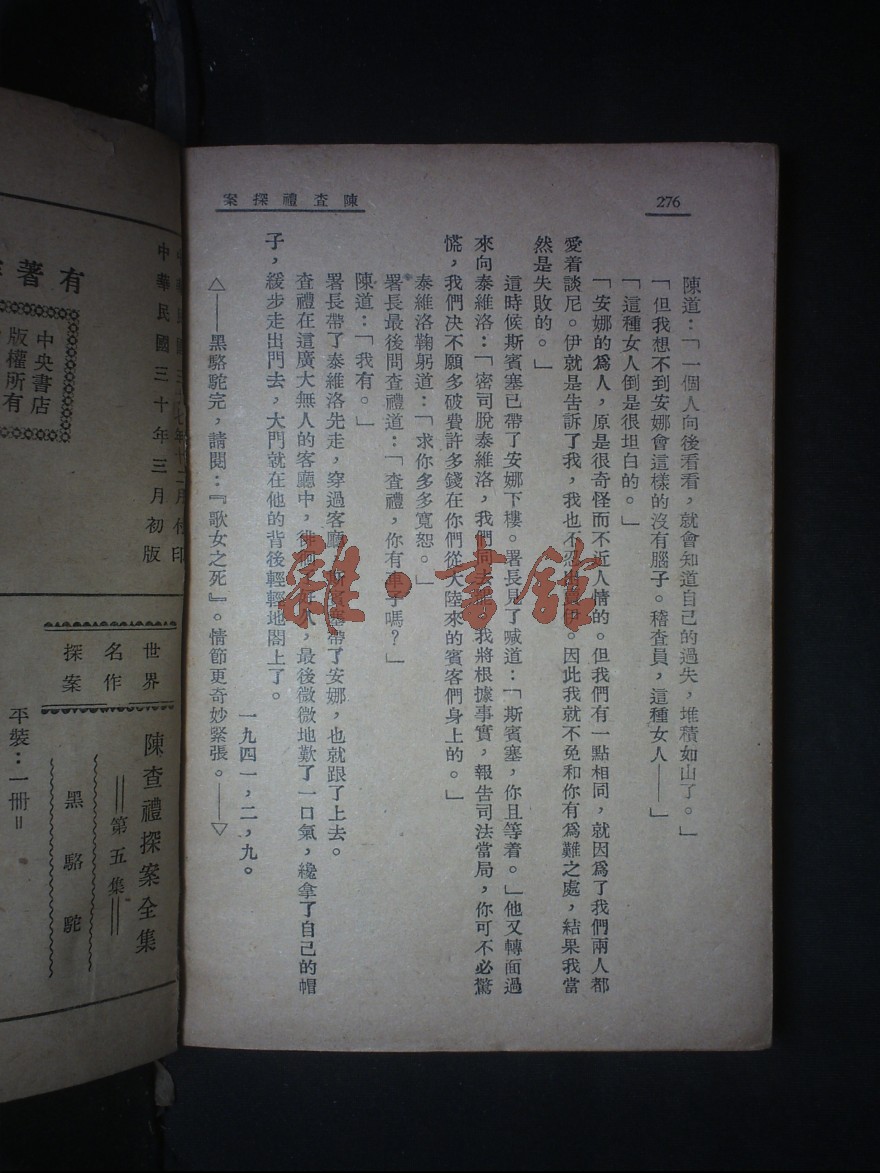 276
陳查禮探案
陳道：「一個人向後看看，就會知道自己的過失，堆積如山了。」
「但我想不到安娜會這樣的沒有腦子。稽查員，這種女人——」
「這種女人倒是很坦白的。」
「安娜的爲人，原是很奇怪而不近人情的。但我們有一點相同，就因爲了我們兩人都
愛着談尼。伊就是告訴了我，我也不忍
伊。因此我就不免和你有爲難之處，結果我當
然是失敗的。」
這時候斯賓塞已帶了安娜下樓。署長見了喊道：「斯賓塞，你且等着。」他又轉面過
來向泰維洛：「密司脫泰維洛，我們同去
我將根據事實，報告司法當局，你可不必驚
慌，我們決不願多破費許多錢在你們從大陸來的賓客們身上的。」
泰維洛鞠躬道：「求你多多寬恕。」
署長最後問查禮道：「查禮，你有車子嗎？」
陳道：「我有。」
署長帶了泰維洛先走，穿過客廳，斯賓塞帶了安娜，也就跟了上去。
查禮在這廣大無人的客廳中，徘徊
最後微微地歎了一口氣，纔拿了自己的帽
子，緩步走出門去，大門就在他的背後輕輕地閤上了。
一九四一，二，九。
△——黑駱駝完，請閱：『歌女之死』。情節更奇妙緊張。——▽
雜·書館
中華民國三十年三月初版
月付印
有著
中央書店
版權所有
世界
名作
探案
陳查禮探案全集
第五集
黑駱駝
平裝：一冊